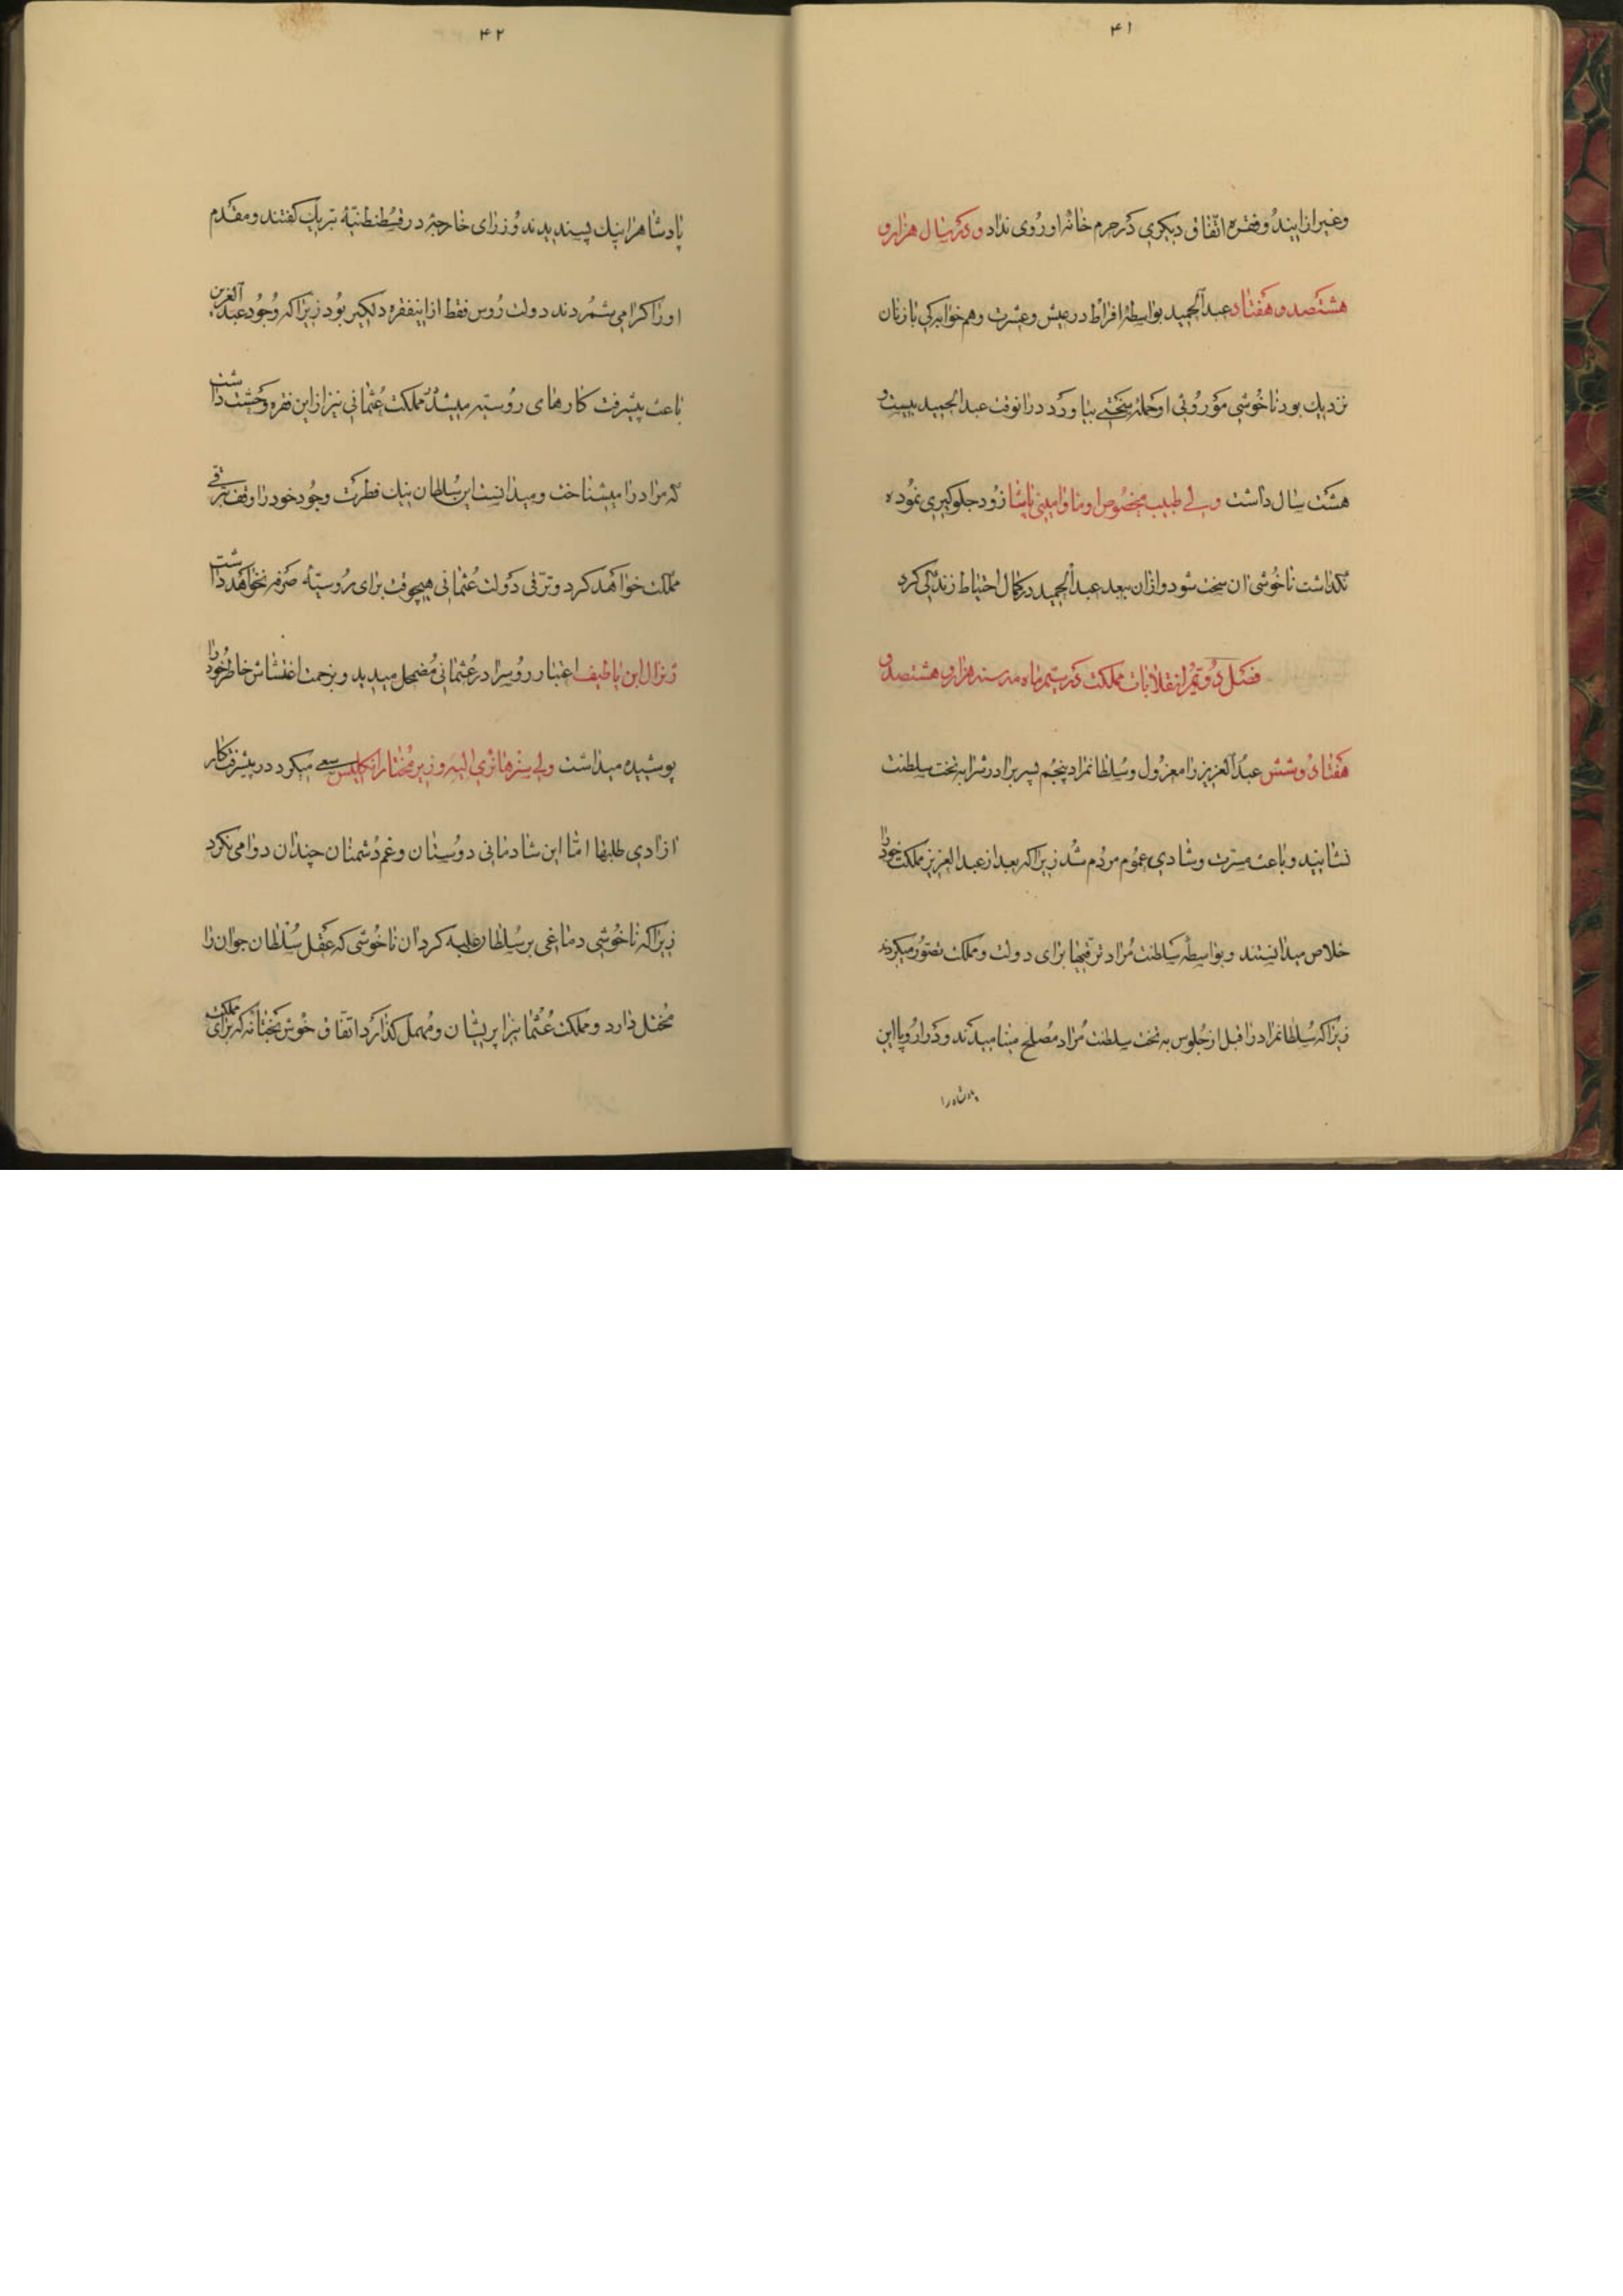 ۴۱
وغیر از ایندو فقره اتفاق دیگری در حرم خانۀ او روی نداد و در سال هزار و
هشتصد و هفتاد عبدالحمید بواسطۀ افراط در عیش و عشرت و هم خوابگی با زنان
نزدیک بود ناخوشی موروثی او حملۀ سختی بیاورد در انوقت عبدالحمید بیست و
هشت سال داشت ولی طبیب مخصوص او ماوامینی پاشا زود جلوگیری نموده
نگذاشت ناخوشی ان سخت شود و از ان ببعد عبدالحمید در کمال احتیاط زندگی کرد
فصل دویم انقلابات مملکت در سیم ماه مه سنه هزار و هشتصد و
هفتاد و شش عبدالعزیز را معزول و سلطانمراد پنجم پسر برادرش را به تخت سلطنت
نشانیند و باعث مسرت و شادی عموم مردم شد زیرا که بعد از عبدالعزیز مملکت خود را
خلاص میدانستند و بواسطه سلطنت مراد ترقیها برای دولت و مملکت تصور میکردند
زیرا که سلطانمراد را قبل از جلوس به تخت سلطنت مراد مصلح مینامیدند و در اروپا این
پادشاه را
۴۲
پادشاهرا نیک پسندیدند وزرای خارجه در قسطنطنیه تبریک گفتند و مقدم
او را گرامی شمردند دولت روس فقط از اینفقره دلگیر بود زیرا که وجود عبدالعزیز
باعث پیشرفت کارهای روسیه میشد در مملکت عثمانی نیز از این فقره وحشت داشت
که مراد را میشناخت و میدانست این سلطان نیک فطرت وجود خود را وقف ترقی
مملکت خواهد کرد و ترقی دولت عثمانی هیچوقت برای روسیه صرفه نخواهد داشت
ژنرال این یاطیف اعتبار روس را در عثمانی مضمحل میدید و بزحمت اغتشاش خاطر خود را
پوشیده میداشت ولی سرهانری الیه وزیر مختار انگلیس سعی میکرد در پیشرفت کار
ازادی طلبها اما این شادمانی دوستان و غم دشمنان چندان دوامی نکرد
زیرا که ناخوشی دماغی بر سلطان غلبه کرد ان ناخوشی که عقل سلطان جوان را
مختل دارد و مملکت عثمانیرا پریشان و مهمل گذارد اتفاق خوش بختانه که برای مملکت